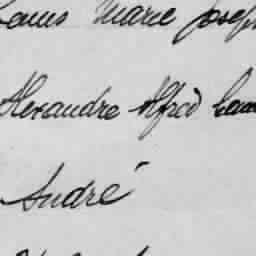 Louis Marie Joseph
Alexandre Alfred
André